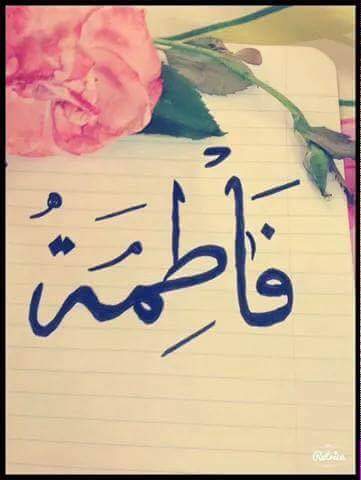 فَاطِمَةُ
Retrica